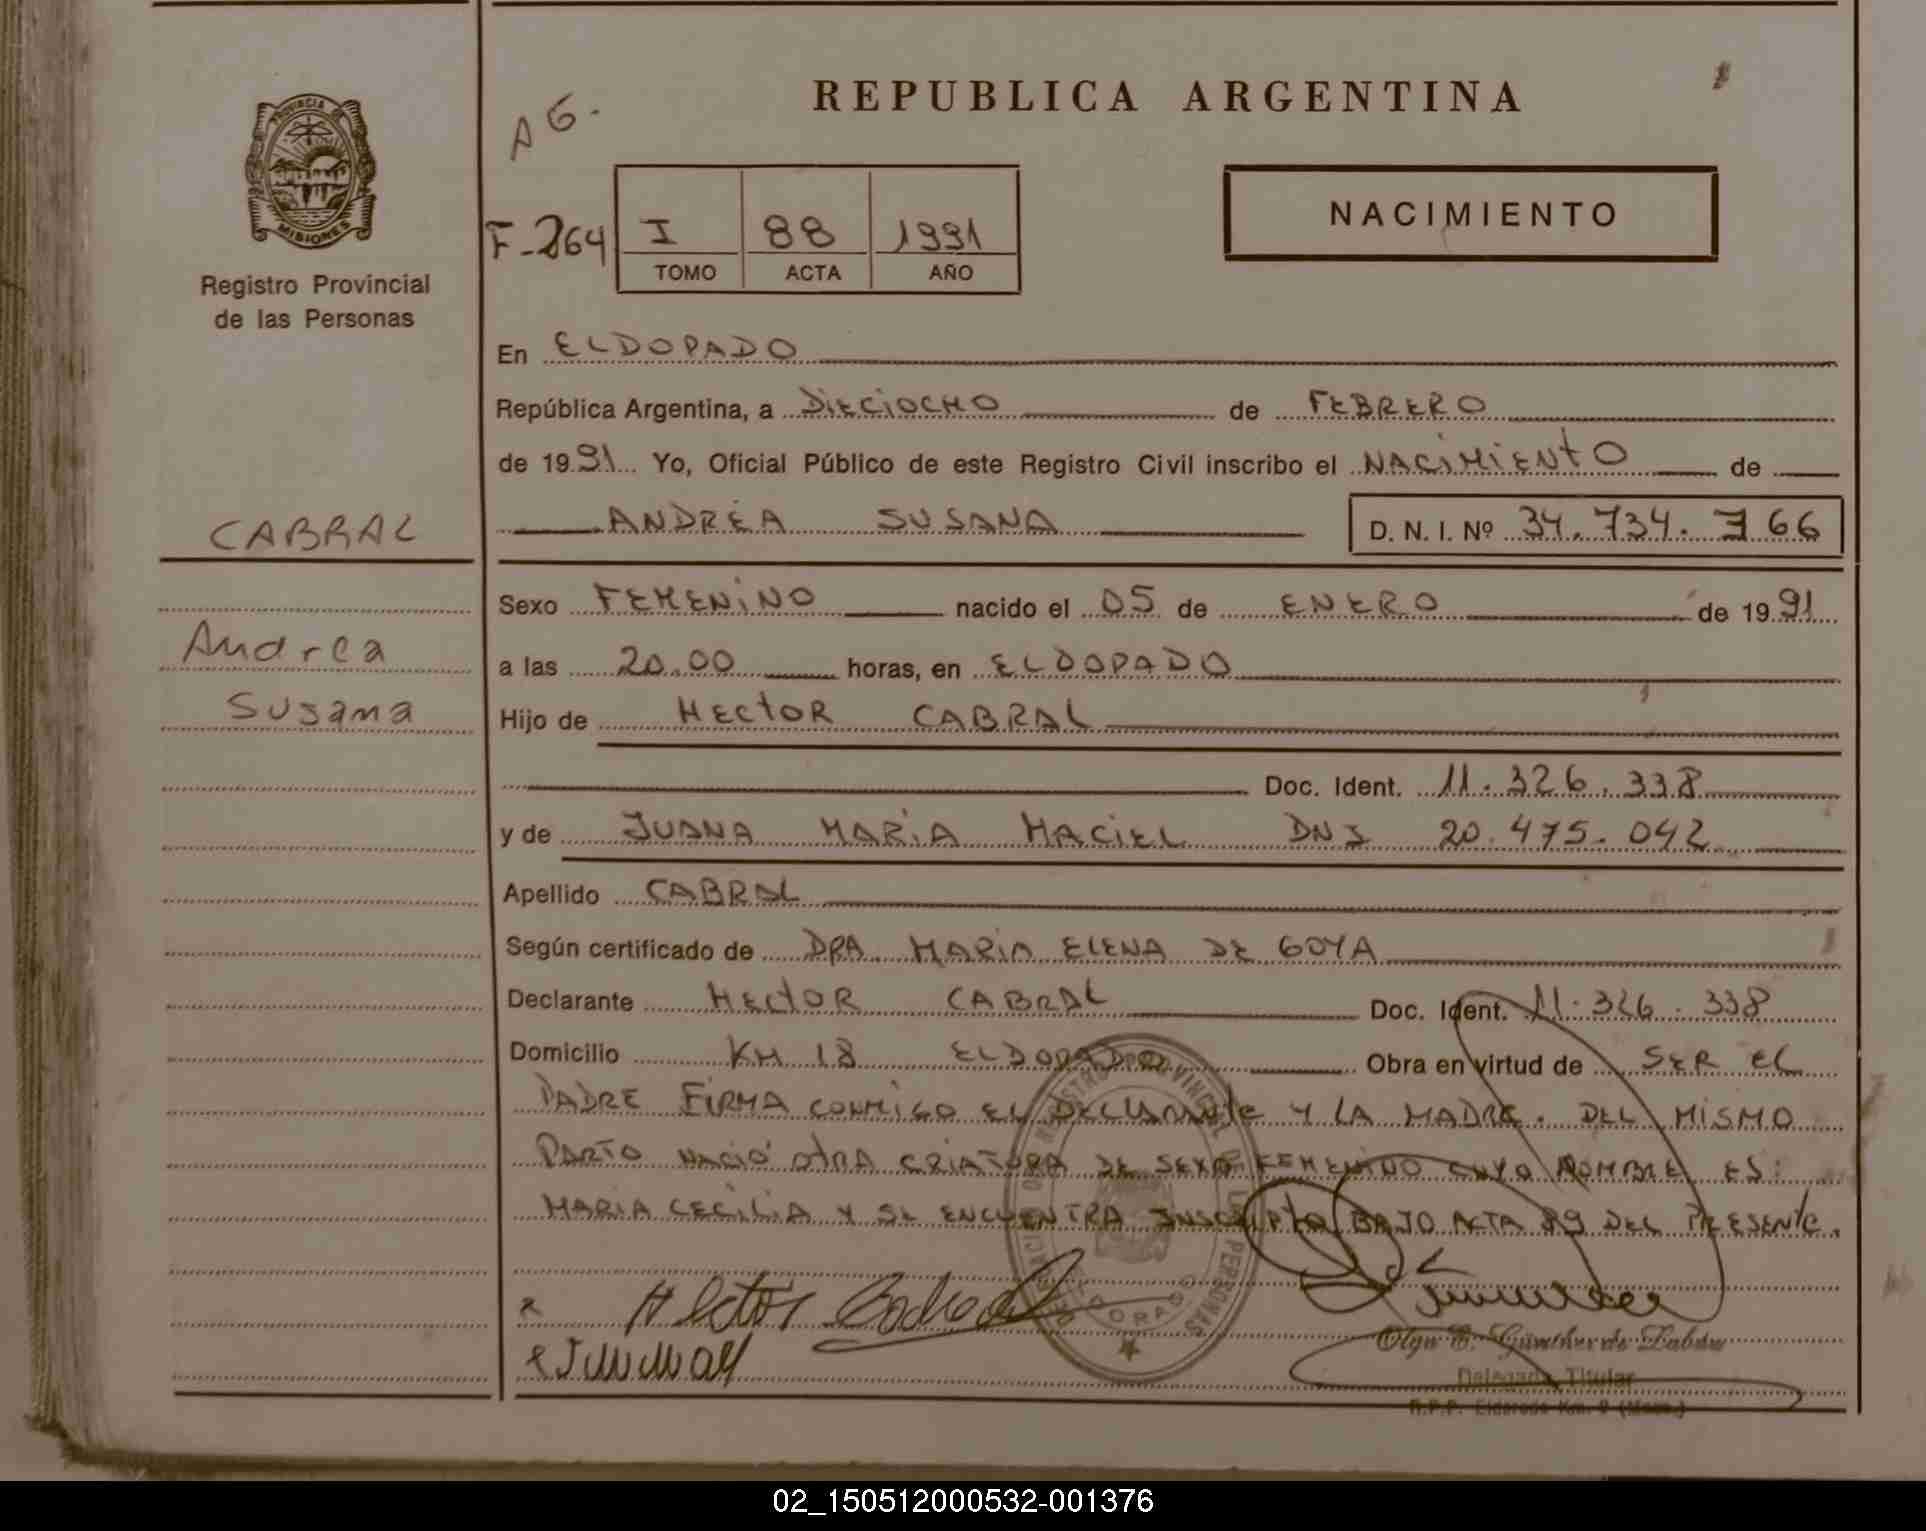 REPUBLICA ARGENTINA
A G.
PROVINCIA
MISIONES
Registro Provincial
de las Personas
NACIMIENTO
F-264 I 88 1991
TOMO ACTA AÑO
En ELDORADO
República Argentina, a DIECIOCHO de FEBRERO
de 1991 Yo, Oficial Público de este Registro Civil inscribo el NACIMIENTO de
CABRAL
ANDREA SUSANA D. N. I. Nº 34.734.766
Sexo FEMENINO nacido el 05 de ENERO de 1991
Andrea
a las 20.00 horas, en ELDORADO
Susana
Hijo de HECTOR CABRAL
Doc. Ident. 11.326.338
y de JUANA MARIA MACIEL DNI 20.475.042
Apellido CABRAL
Según certificado de DRA. MARIA ELENA DE GOYA
Declarante HECTOR CABRAL Doc. Ident. 11.326.338
Domicilio KM 18 ELDORADO Obra en virtud de SER EL
PADRE FIRMA CONMIGO EL DECLARANTE Y LA MADRE. DEL MISMO
PARTO NACIÓ OTRA CRIATURA DE SEXO FEMENINO CUYO NOMBRE ES:
MARIA CECILIA Y SE ENCUENTRA INSCRIPTA BAJO ACTA 89 DEL PRESENTE.
x Hector
Olga E. Günther de
Delegada Titular
R.P.P. Eldorado Km. 9 (Mnes.)
02_150512000532-001376